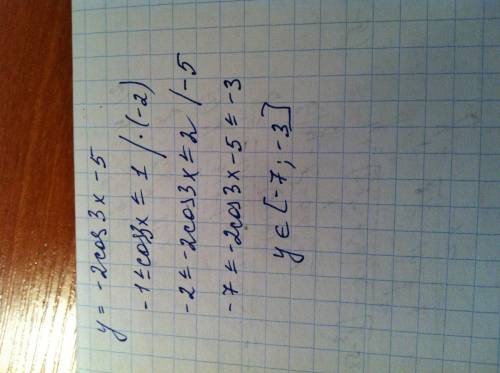 y = -2cos 3x -5
-1 ≤ cos3x ≤ 1 / · (-2)
-2 ≤ -2cos 3x ≤ 2 / -5
-7 ≤ -2cos 3x - 5 ≤ -3
y ∈ [-7 ; -3]